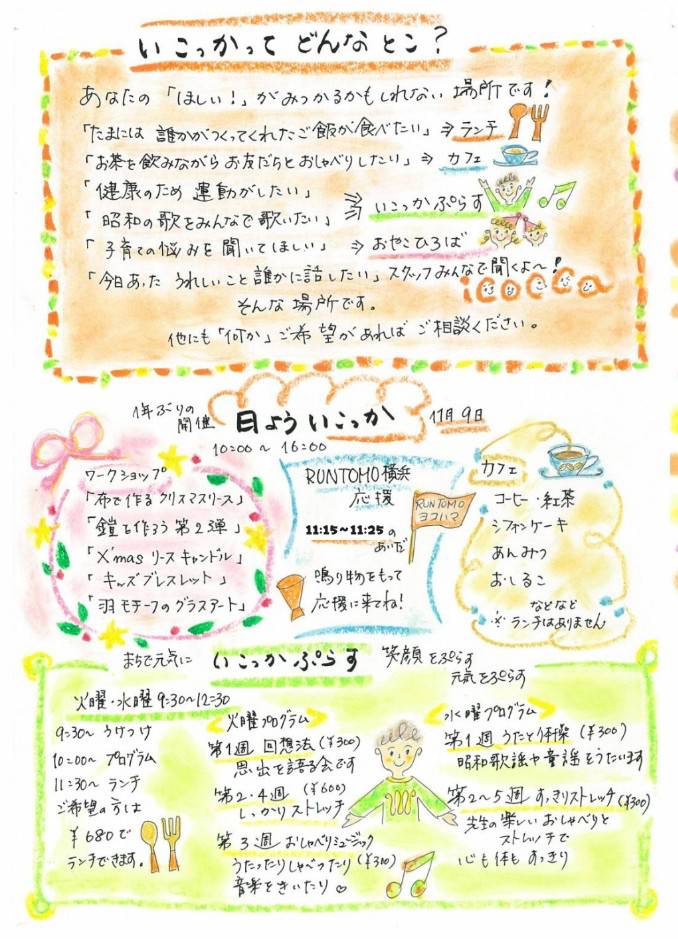 いこっかって どんなとこ？
あなたの「ほしい！」がみつかるかもしれない 場所です！
「たまには 誰かがつくってくれたご飯が食べたい」⇒ ランチ
「お茶を飲みながら お友だちとおしゃべりしたい」⇒ カフェ
「健康のため 運動がしたい」
「昭和の歌をみんなで歌いたい」⇒ いこっかぷらす
「子育ての悩みを聞いてほしい」⇒ おやこひろば
「今日あった うれしいこと誰かに話したい」スタッフみんなで聞くよ〜！
icocca
そんな場所です。
他にも「何か」ご希望があれば ご相談ください。
1年ぶりの開催
日よういこっか
11月9日
10:00〜16:00
ワークショップ
「布で作るクリスマスリース」
「鎧を作ろう 第2弾」
「X'mas リースキャンドル」
「キッズブレスレット」
「羽モチーフのグラスアート」
RUNTOMO横浜
応援
11:15~11:25の
あいだ
鳴り物をもって
応援に来てね！
RUNTOMO
ヨコハマ
カフェ
コーヒー・紅茶
シフォンケーキ
あんみつ
おしるこ
などなど
※ランチはありません
まちで元気に いこっか ぷらす 笑顔をぷらす
元気をぷらす
火曜・水曜 9:30〜12:30
9:30〜 うけつけ
10:00〜 プログラム
11:30〜 ランチ
ご希望の方は
￥680で
ランチできます。
火曜プログラム
第1週 回想法（￥300）
思出を語る会です
第2・4週（￥600）
しっかりストレッチ
第3週 おしゃべりミュージック
うたったりしゃべったり（￥300）
音楽をきいたり♡
水曜プログラム
第1週 うたと体操（￥300）
昭和歌謡や童謡をうたいます
第2〜5週 すっきりストレッチ（￥300）
先生の楽しいおしゃべりと
ストレッチで
心も体もすっきり